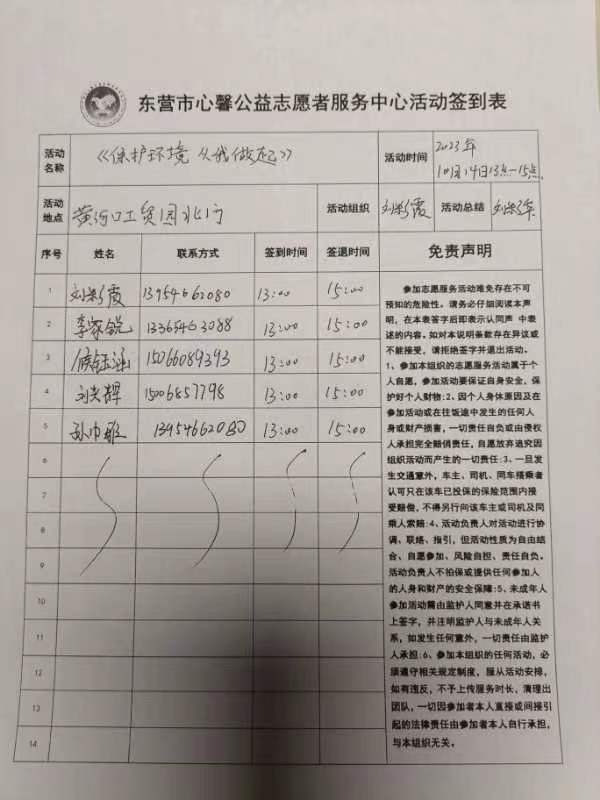 东营市心馨公益志愿者服务中心活动签到表
活动名称 《保护环境 从我做起》 活动时间 2023年10月14日13点-15点
活动地点 黄河口工贸园北门 活动组织 刘彩霞 活动总结
序号 姓名 联系方式 签到时间 签退时间 免责声明
1 刘彩霞 13954662080 13:00 15:00
2 李家锐 13365463088 13:00 15:00
3 15066089393 13:00 15:00
4 刘光辉 15006857798 13:00 15:00
5 13954662080 13:00 15:00
6
7
8
9
10
11
12
13
14
参加志愿服务活动难免存在不可
预知的危险性。请务必仔细阅读本声
明，在本表签字后即表示认同声 中表
述的内容。如对本说明条款存在异议或
不能接受，请拒绝签字并退出活动。
1、参加本组织的志愿服务活动属于个
人自愿，参加活动要保证自身安全，保
护好个人财物:2、因个人身体原因及在
参加活动或在往饭途中发生的任何人
身或财产损害，一切责任自负或由侵权
人承担完全赔偿责任，自愿放弃追究因
组织活动而产生的一切责任:3、一旦发
生交通意外，车主、司机、同车搭乘者
认可只在该车已投保的保险范围内接
受赔偿，不得另行向该车主或司机及同
乘人索赔:4、活动负责人对活动进行协
调、联络、指引，但活动性质为自由结
合、自愿参加、风险自担、责任自负。
活动负责人不怕保或提供任何参加人
的人身和财产的安全保障:5、未成年人
参加活动需由监护人同意并在承诺书
上签字，并注明监护人与未成年人关
系，如发生任何意外，一切责任由监护
人承担:6、参加本组织的任何活动，必
须遵守相关规定制度，服从活动安排，
如有违反，不予上传服务时长、清理出
团队，一切因参加者本人直接或间接引
起的法律责任由参加者本人自行承担，
与本组织无关。